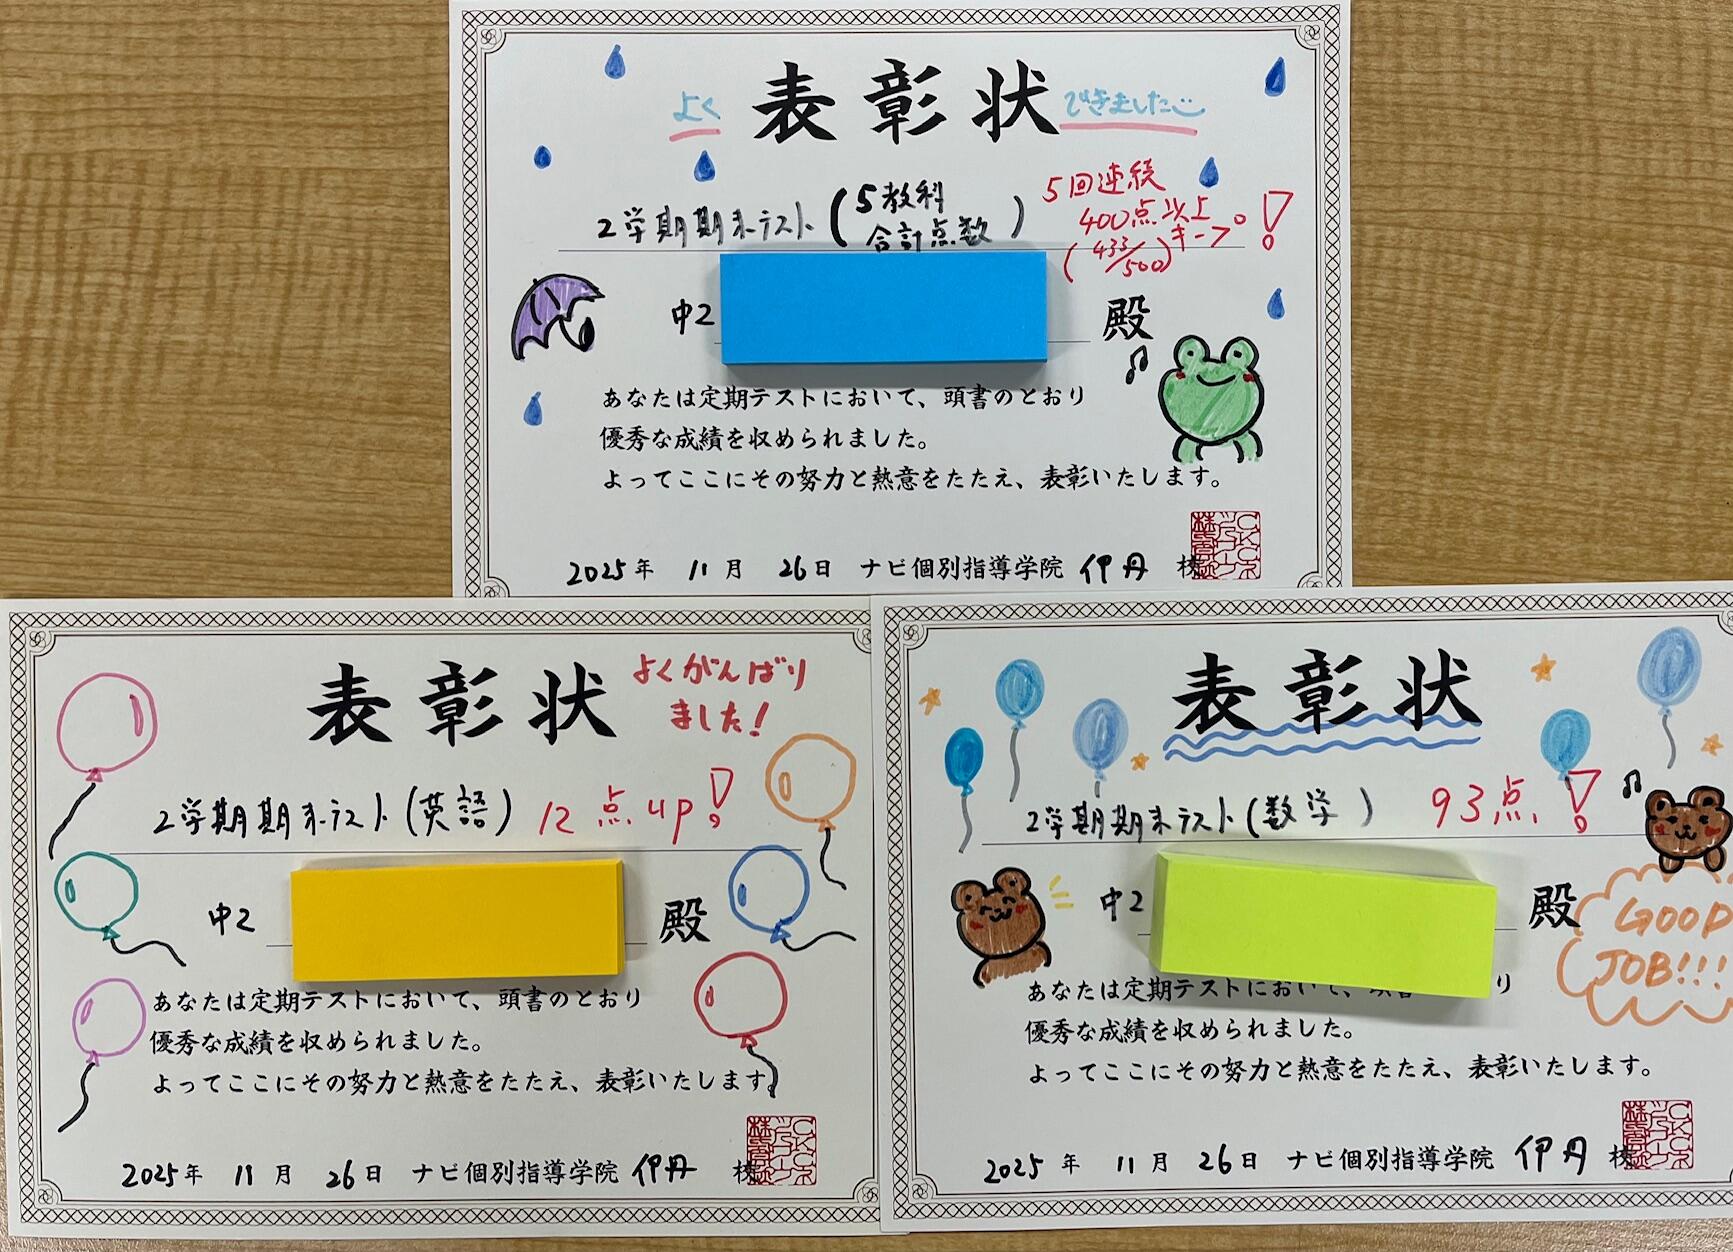 よく 表彰状 できました
2学期期末テスト(5教科合計点数) 5回連続
400点以上
キープ!
(433/500)
中2 殿
あなたは定期テストにおいて、頭書のとおり
優秀な成績を収められました。
よってここにその努力と熱意をたたえ、表彰いたします。
2025年 11月 26日 ナビ個別指導学院 伊丹 校
表彰状 よくがんばり
ました!
2学期期末テスト(英語) 12点up!
中2 殿
あなたは定期テストにおいて、頭書のとおり
優秀な成績を収められました。
よってここにその努力と熱意をたたえ、表彰いたします。
2025年 11月 26日 ナビ個別指導学院 伊丹 校
表彰状
2学期期末テスト(数学) 93点!
中2 殿
GOOD
JOB!!!
あなたは定期テストにおいて、頭書 り
優秀な成績を収められました。
よってここにその努力と熱意をたたえ、表彰いたします。
2025年 11月 26日 ナビ個別指導学院 伊丹 校